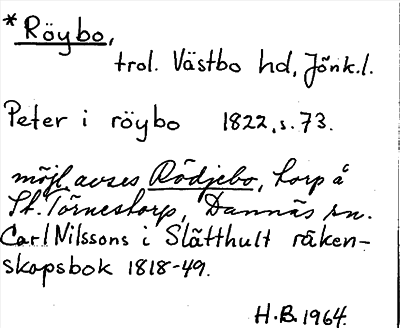 * Röybo,
trol. Västbo hd, Jönk.l.
Peter i röybo 1822, s. 73.
möjl. avses Rödjebo, torp å
St. Törnestorp, Dannäs sn.
Carl Nilssons i Slätthult räken-
skapsbok 1818-49.
H.B. 1964.